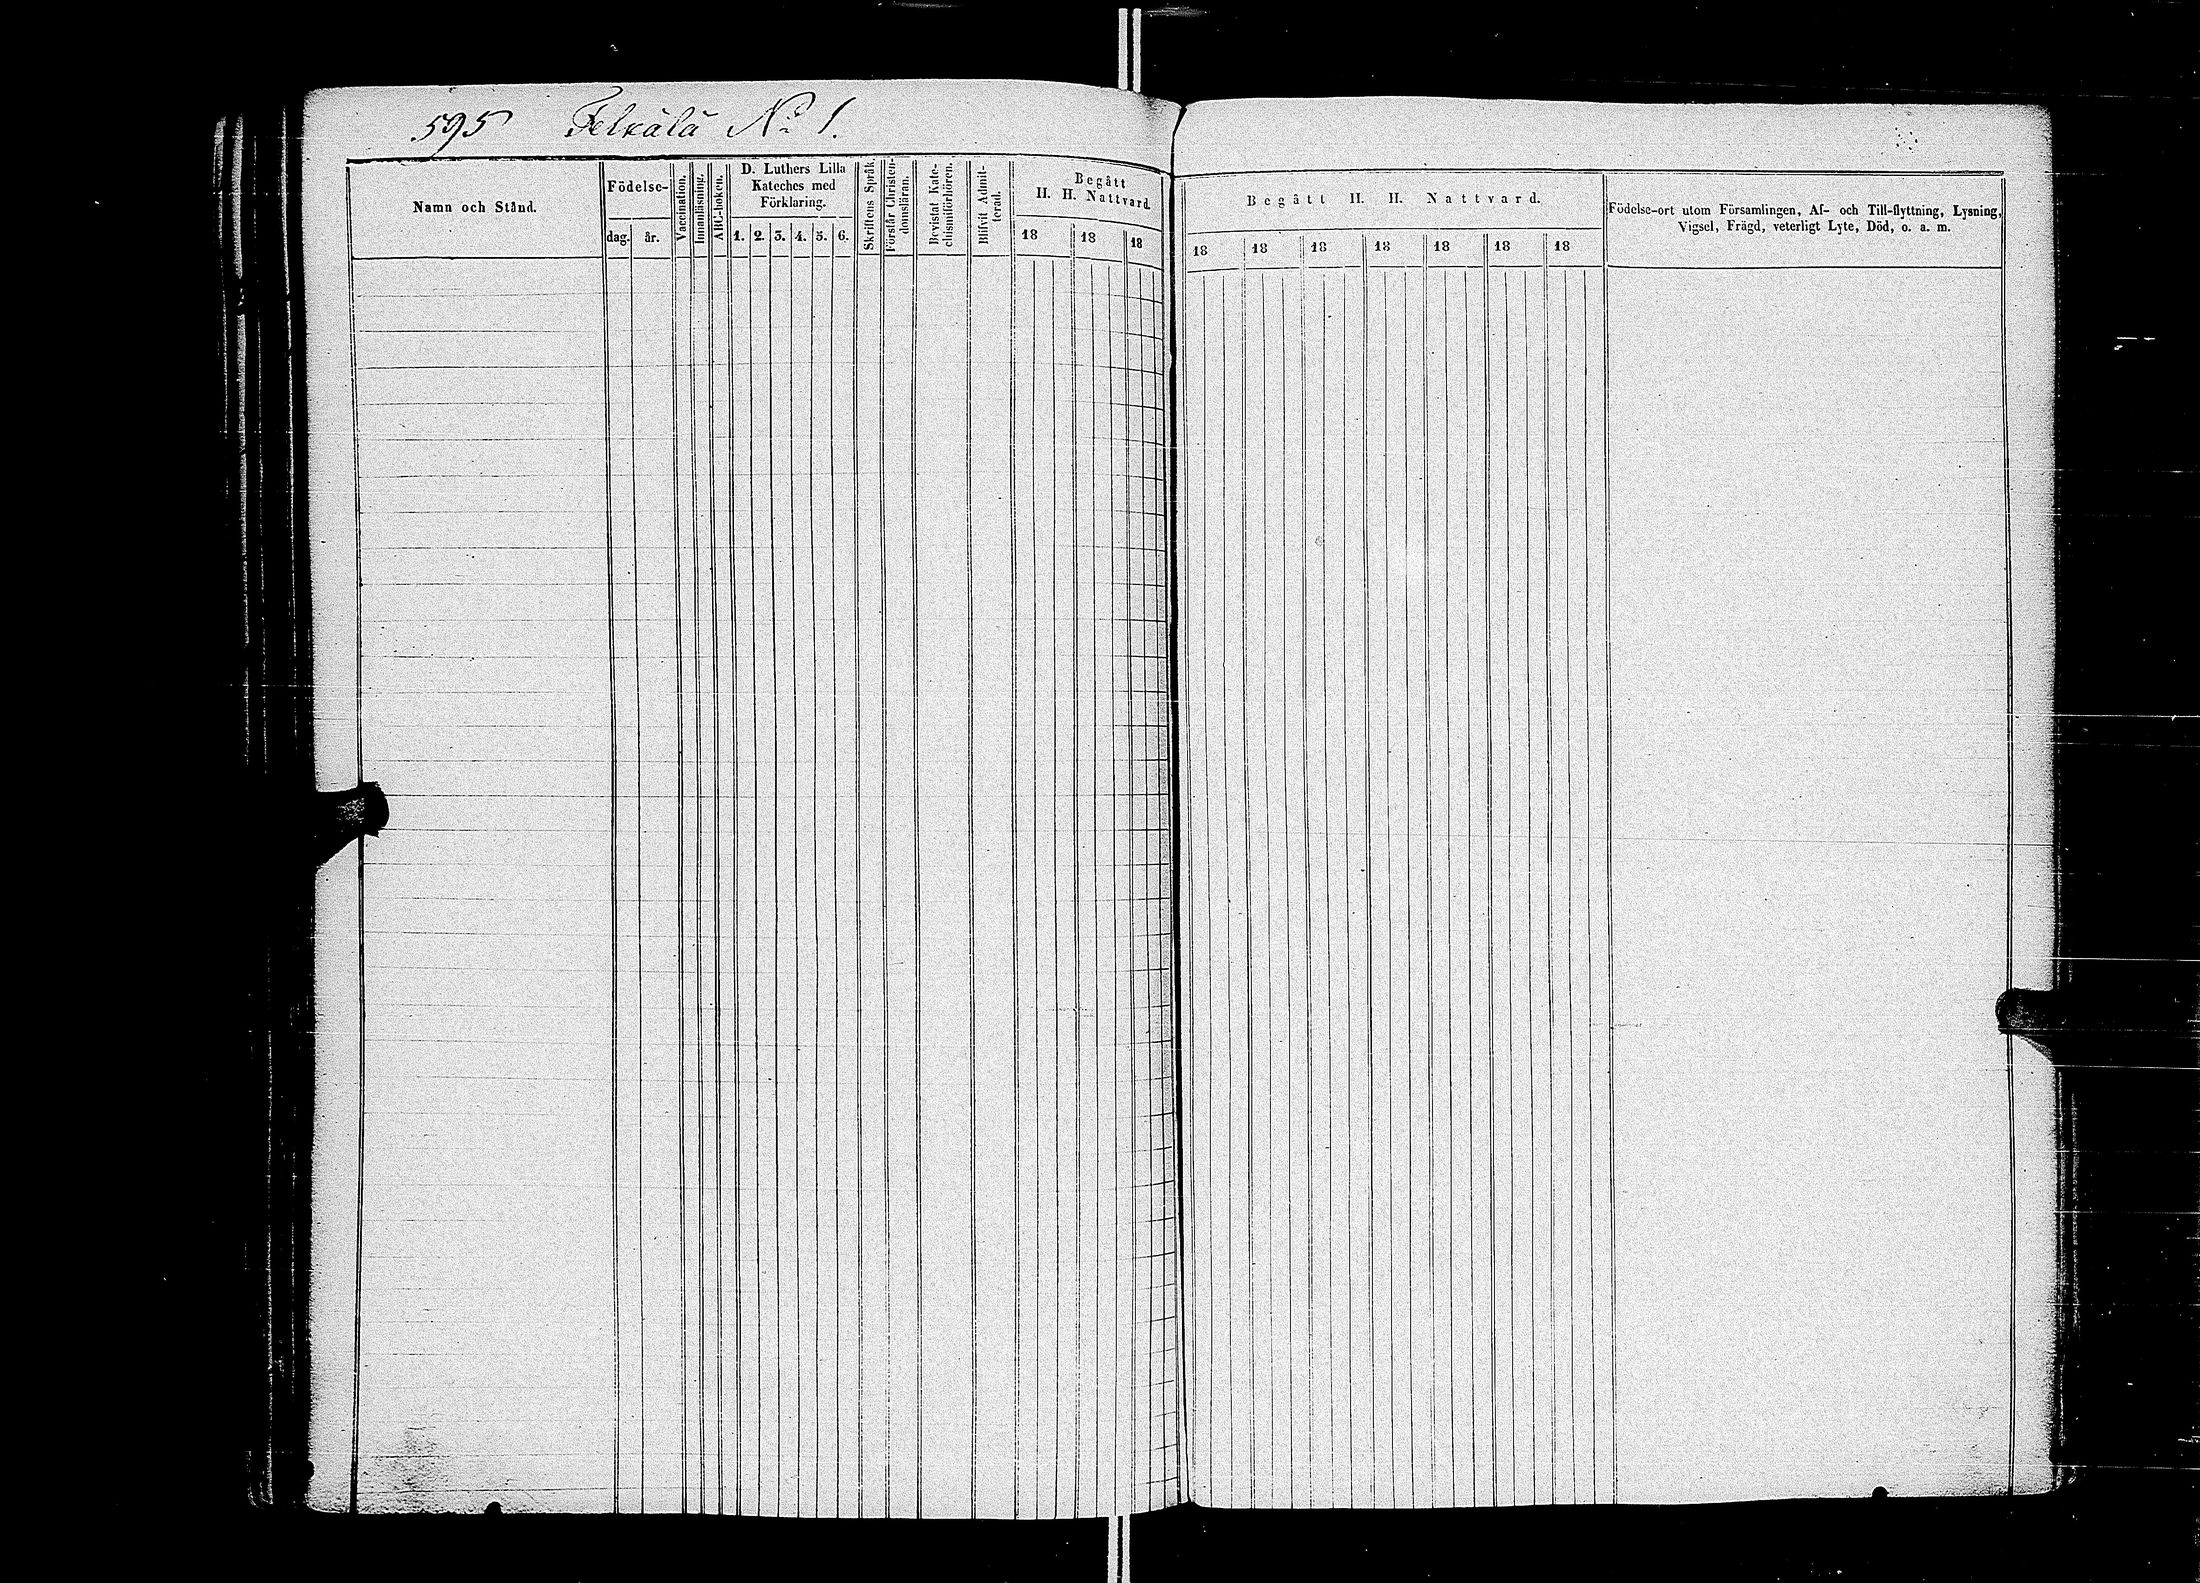 595 Telkälä No 1.
Namn och Stånd.
Födelse-
dag. år.
Vaccination.
Innanläsning.
ABC-boken.
D. Luthers Lilla
Kateches med
Förklaring.
1. 2. 3. 4. 5. 6.
Skriftens Språk.
Förstår Christen-
domsläran.
Bevistat Kate-
chismiförhören.
Blifvit Admit-
terad.
Begått
H. H. Nattvard.
18 18 18
Begått H. H. Nattvard.
18 18 18 18 18 18 18
Födelse-ort utom Församlingen, Af- och Till-flyttning, Lysning,
Vigsel, Frägd, veterligt Lyte, Död, o. a. m.